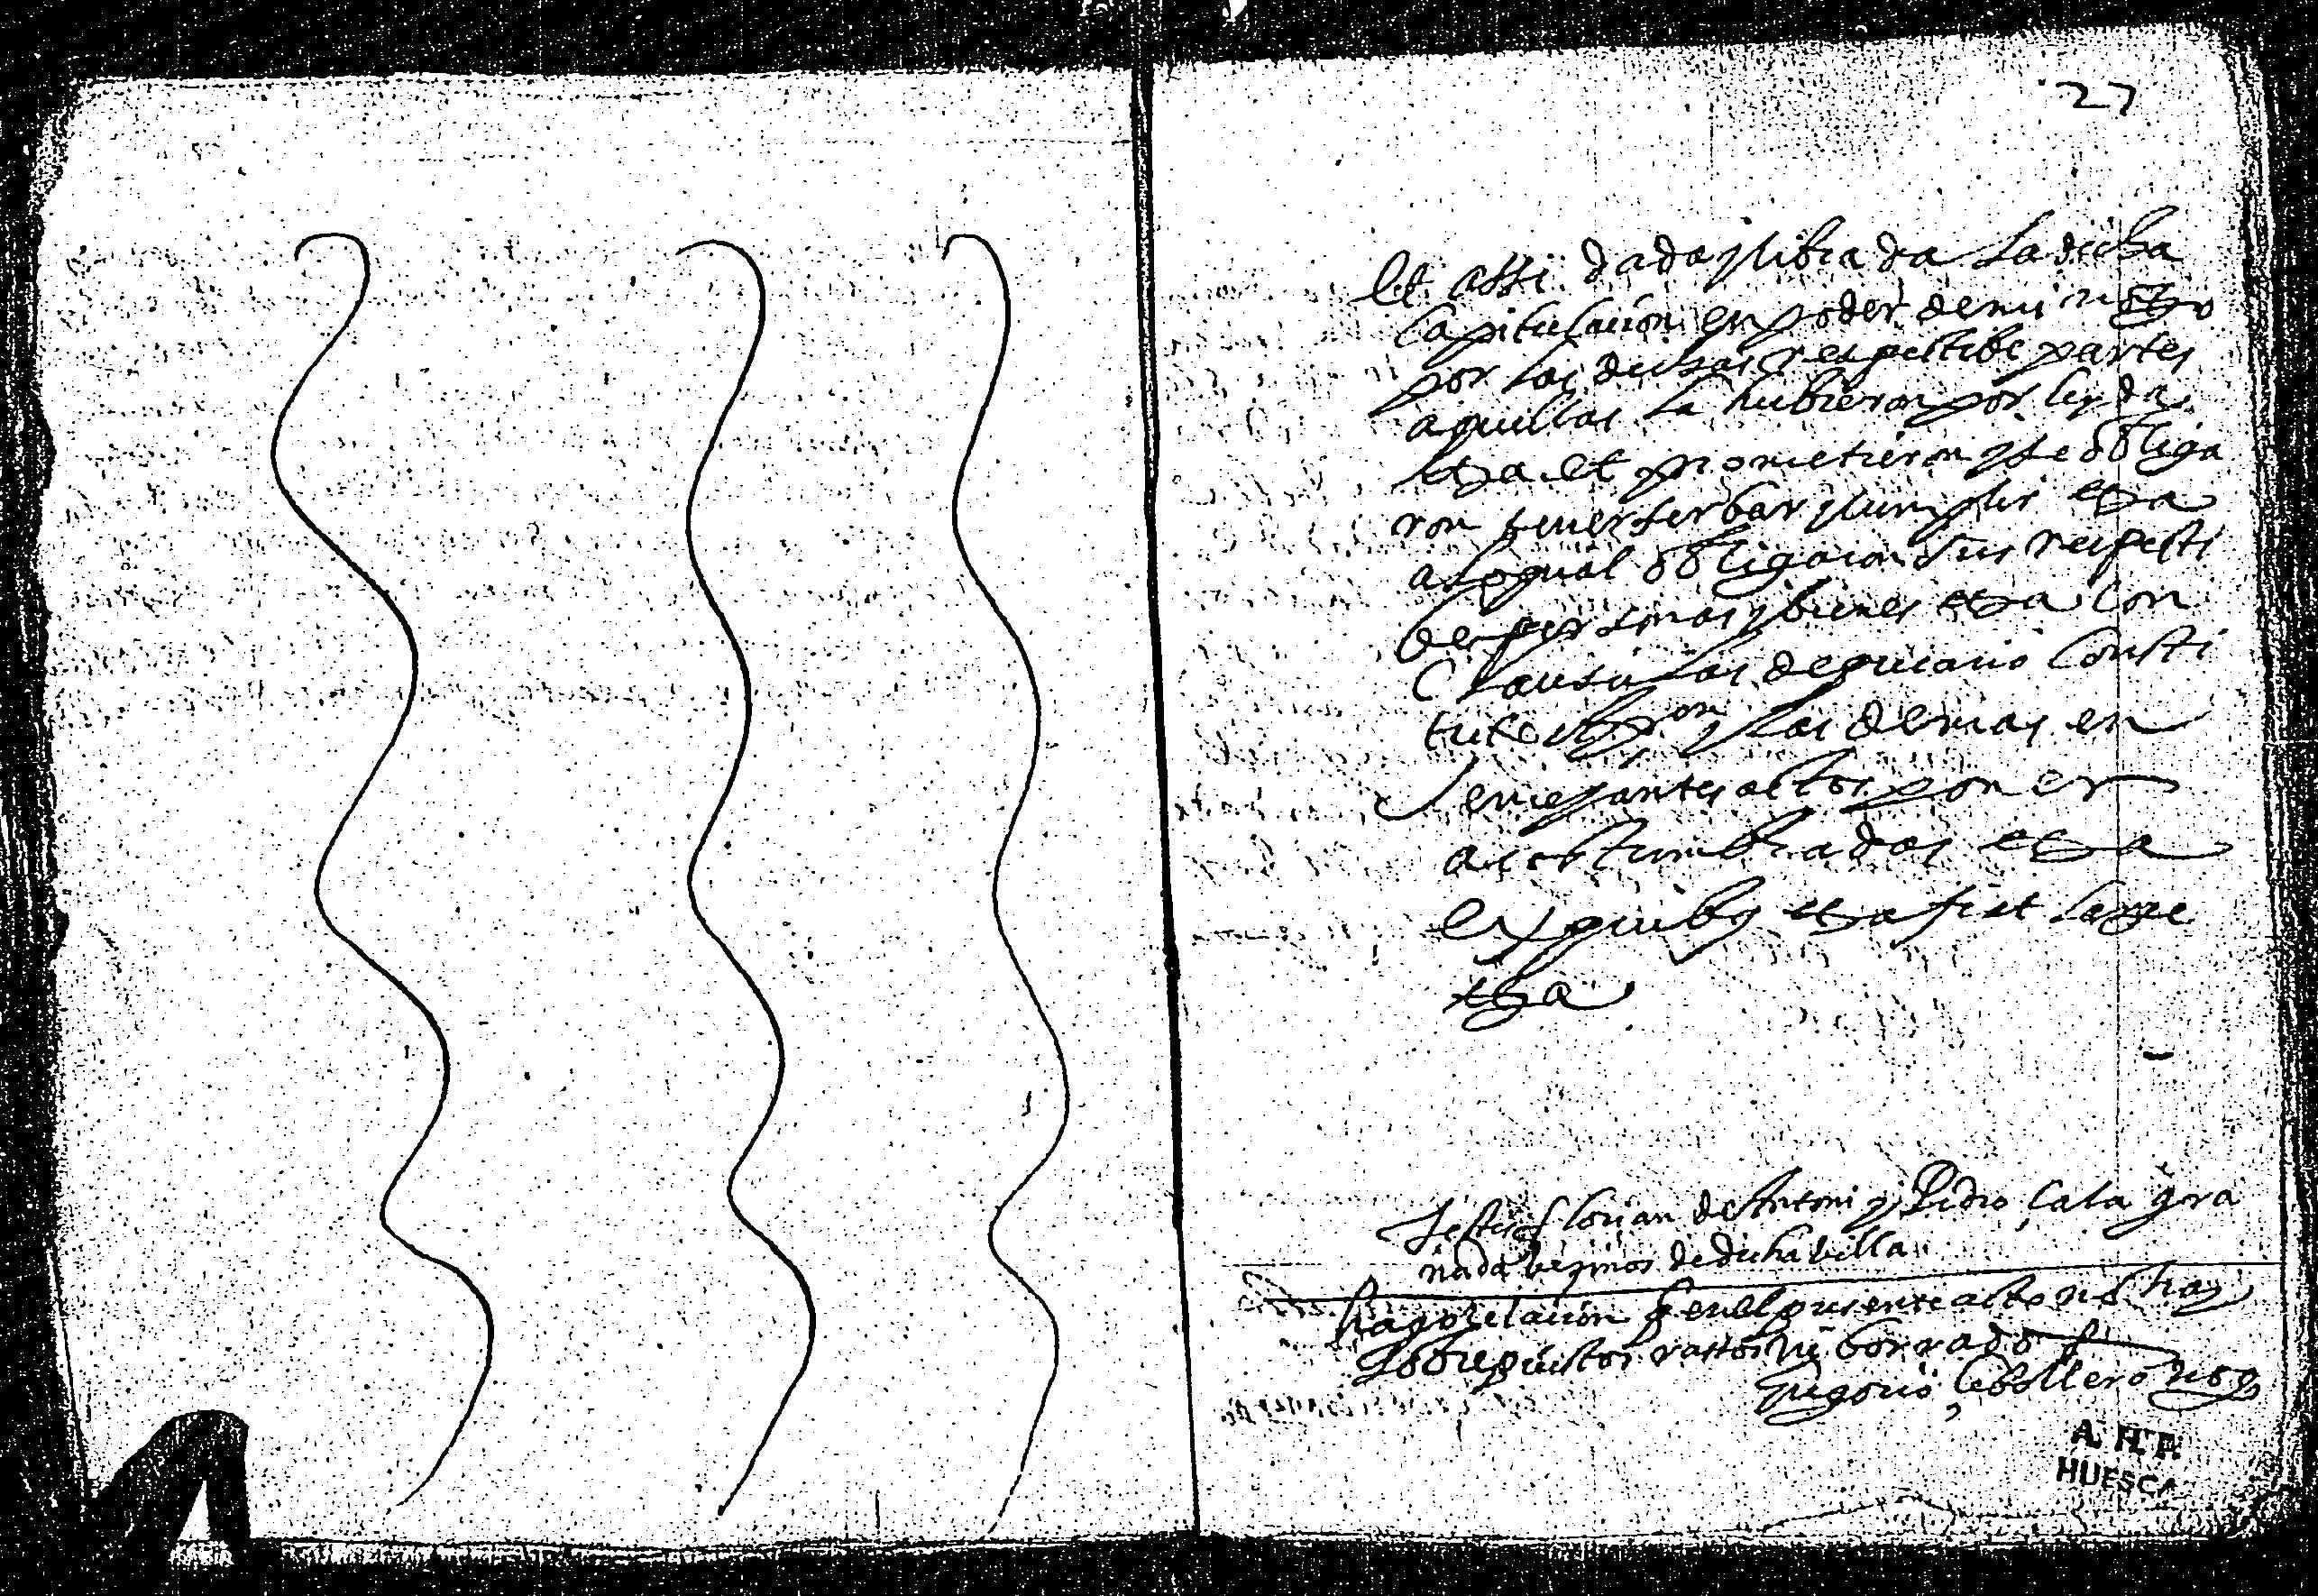 27
Et assi dada y librada la dicha
capitulacion en poder de mi notro
por las dichas respectibe partes
aquellas la hubieron por leyda
etca et prometieron y se obliga
ron tener serbar y cumplir etca
a lo qual obligaron sus respecti
be personas y bienes etca con
clausulas de precario consti
tuto y las demas en
semejantes actos poner
acostumbradas etca
ex quibus etca fiat large
etca
Testes Florian de Antoni y Pedro Cala gra
nada vezinos de dicha villa
hago relacion q en el presente acto no hay
sobrepuestos rastos ni borrado
Gregorio Cebollero not
A. H. P.
HUESCA